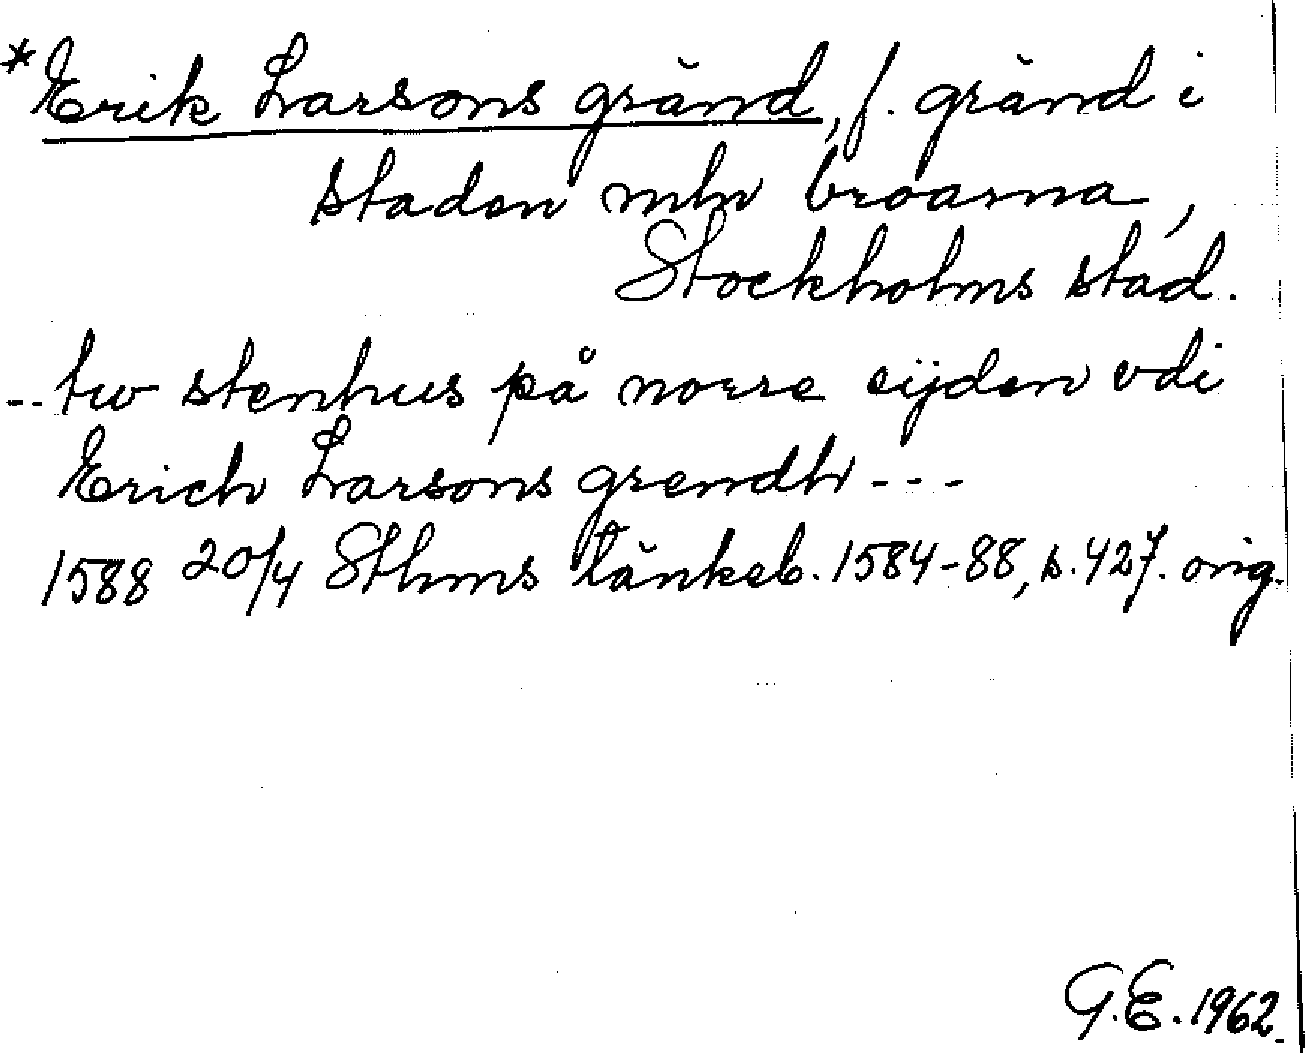 *Erik Larsons gränd, f. gränd i
staden mln broarna,
Stockholms stad.
-- tw stenhus på norre sijden vdi
Erich Larsons grendh ---
1588 20/4 Sthms tänkeb. 1584-88, s. 427. orig.
G.E. 1962.